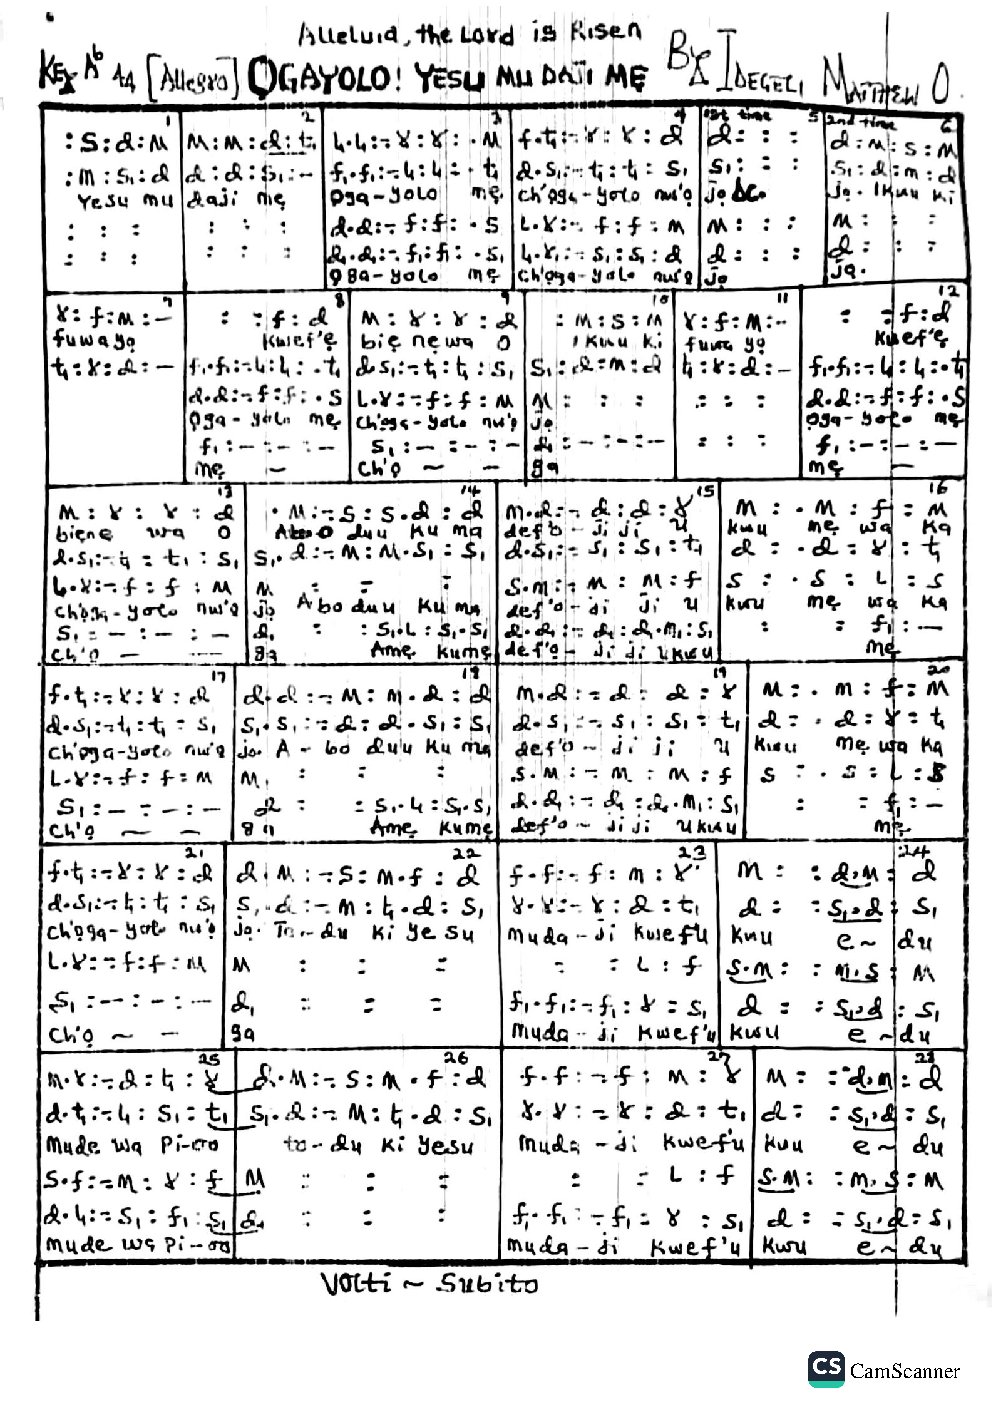 Alleluia, the Lord is Risen
KEY Ab 4/4 [Allegro] ỌGAYOLO! YESU MU DAJI MẸ BY IDEGELI MATTHEW O.
1 2 3 4 1st time 5 2nd time 6
:S:d:M M:M:d:t₁ l₁.l₁:-ɤ:ɤ:.M f.t₁:-ɤ:ɤ:d d: : : d:M:S:M
:M:S₁:d d:d:S₁:- f₁.f₁:-l₁:l₁:.t₁ d.S₁:-t₁:t₁:S₁ S₁: : : S₁:d:m:d
Yesu mu daji mẹ Ọga-yolo mẹ Ch'ọga-yolo nu'ọ jọ jọ. Ikwu ki
: : : : : : d.d:-f:f:.S L.ɤ:-f:f:M M: : : M: : :
: : : : : : d₁.d₁:-f₁:f₁:.S₁ l₁.ɤ₁:-S₁:S₁:d d: : : d: : :
Ọga-yolo mẹ Ch'ọga-yolo nu'ọ jọ jọ.
7 8 9 10 11 12
ɤ:f:M:- : :f:d M:ɤ:ɤ:d :M:S:M ɤ:f:M:- : :f:d
fuwa yọ Kwef'ẹ biẹ nẹ wa O Ikwu ki fuwa yọ Kwef'ẹ
t₁:ɤ:d:- f₁.f₁:-l₁:l₁:.t₁ d.S₁:-t₁:t₁:S₁ S₁:d:m:d t₁:ɤ:d:- f₁.f₁:-l₁:l₁:.t₁
d.d:-f:f:.S L.ɤ:-f:f:M M: : : : : : d.d:-f:f:.S
Ọga-yolo mẹ Ch'ọga-yolo nu'ọ jọ Ọga-yolo mẹ
f₁:-:-:- S₁:-:-:- d₁:-:-:- : : : f₁:-:-:-
mẹ - Ch'ọ ~ - ga mẹ -
13 14 15 16
M:ɤ:ɤ:d .M:-S:S.d:d M.d:-d:d:ɤ M:.M:f:M
biẹnẹ wa O Abo duu ku ma def'o-ji ji u kwu mẹ wa ka
d.S₁:-t₁:t₁:S₁ S₁.d:-M:M.S₁:S₁ d.S₁:-S₁:S₁:t₁ d:.d:ɤ:t₁
L.ɤ:-f:f:M M : : : S.m:-M:M:f S:.S:L:S
Ch'ọga-yolo nu'ọ jọ Abo duu Ku ma def'o-ji ji u kwu mẹ wa ka
S₁:-:-:- d₁ : :S₁.L:S₁.S₁ d.d₁:-d₁:d₁.M₁:S₁ : :f₁:-
Ch'ọ - - ga Amẹ kumẹ def'o-ji ji ukwu mẹ
17 18 19 20
f.t₁:-ɤ:ɤ:d d.d:-M:m.d:d M.d:-d:d:ɤ M:.m:f:M
d.S₁:-t₁:t₁:S₁ S₁.S₁:-d:d.S₁:S₁ d.S₁:-S₁:S₁:t₁ d:.d:ɤ:t₁
Ch'ọga-yolo nu'ọ jọ. A-bo duu Ku ma def'o-ji ji u kwu mẹ wa ka
L.ɤ:-f:f:M M : : : S.M:-M:M:f S:.S:L:S
S₁:-:-:- d : :S₁.l₁:S₁.S₁ d.d₁:-d₁:d₁.M₁:S₁ : :f₁:-
Ch'ọ ~ ~ ga Amẹ Kumẹ def'o-ji ji ukwu mẹ
21 22 23 24
f.t₁:-ɤ:ɤ:d d.M:-S:M.f:d f.f:-f:m:ɤ M: :d.M:d
d.S₁:-t₁:t₁:S₁ S₁.d:-M:t₁.d:S₁ ɤ.ɤ:-ɤ:d:t₁ d: :S₁.d:S₁
Ch'ọga-yolo nu'ọ jọ. To-du ki Yesu muda-ji Kwef'u Kwu e~du
L.ɤ:-f:f:M M : : : : :L:f S.M: :M.S:M
S₁:-:-:- d₁ : : : f₁.f₁:-f₁:ɤ:S₁ d: :S₁.d:S₁
Ch'ọ ~ - ga Muda-ji Kwef'u Kwu e~du
25 26 27 28
M.ɤ:-d:t₁:ɤ d.M:-S:M.f:d f.f:-f:M:ɤ M: :d.m:d
d.t₁:-l₁:S₁:t₁ S₁.d:-M:t₁.d:S₁ ɤ.ɤ:-ɤ:d:t₁ d: :S₁.d:S₁
Mude wa Pi-oo to-du ki Yesu Muda-ji Kwef'u Kwu e~du
S.f:-M:ɤ:f M : : : : :L:f S.M: :M.S:M
d.l₁:-S₁:f₁:S₁ d₁ : : : f₁.f₁:-f₁:ɤ:S₁ d: :S₁.d:S₁
mude wa Pi-oo muda-ji Kwef'u Kwu e~du
Volti ~ Subito
CS CamScanner